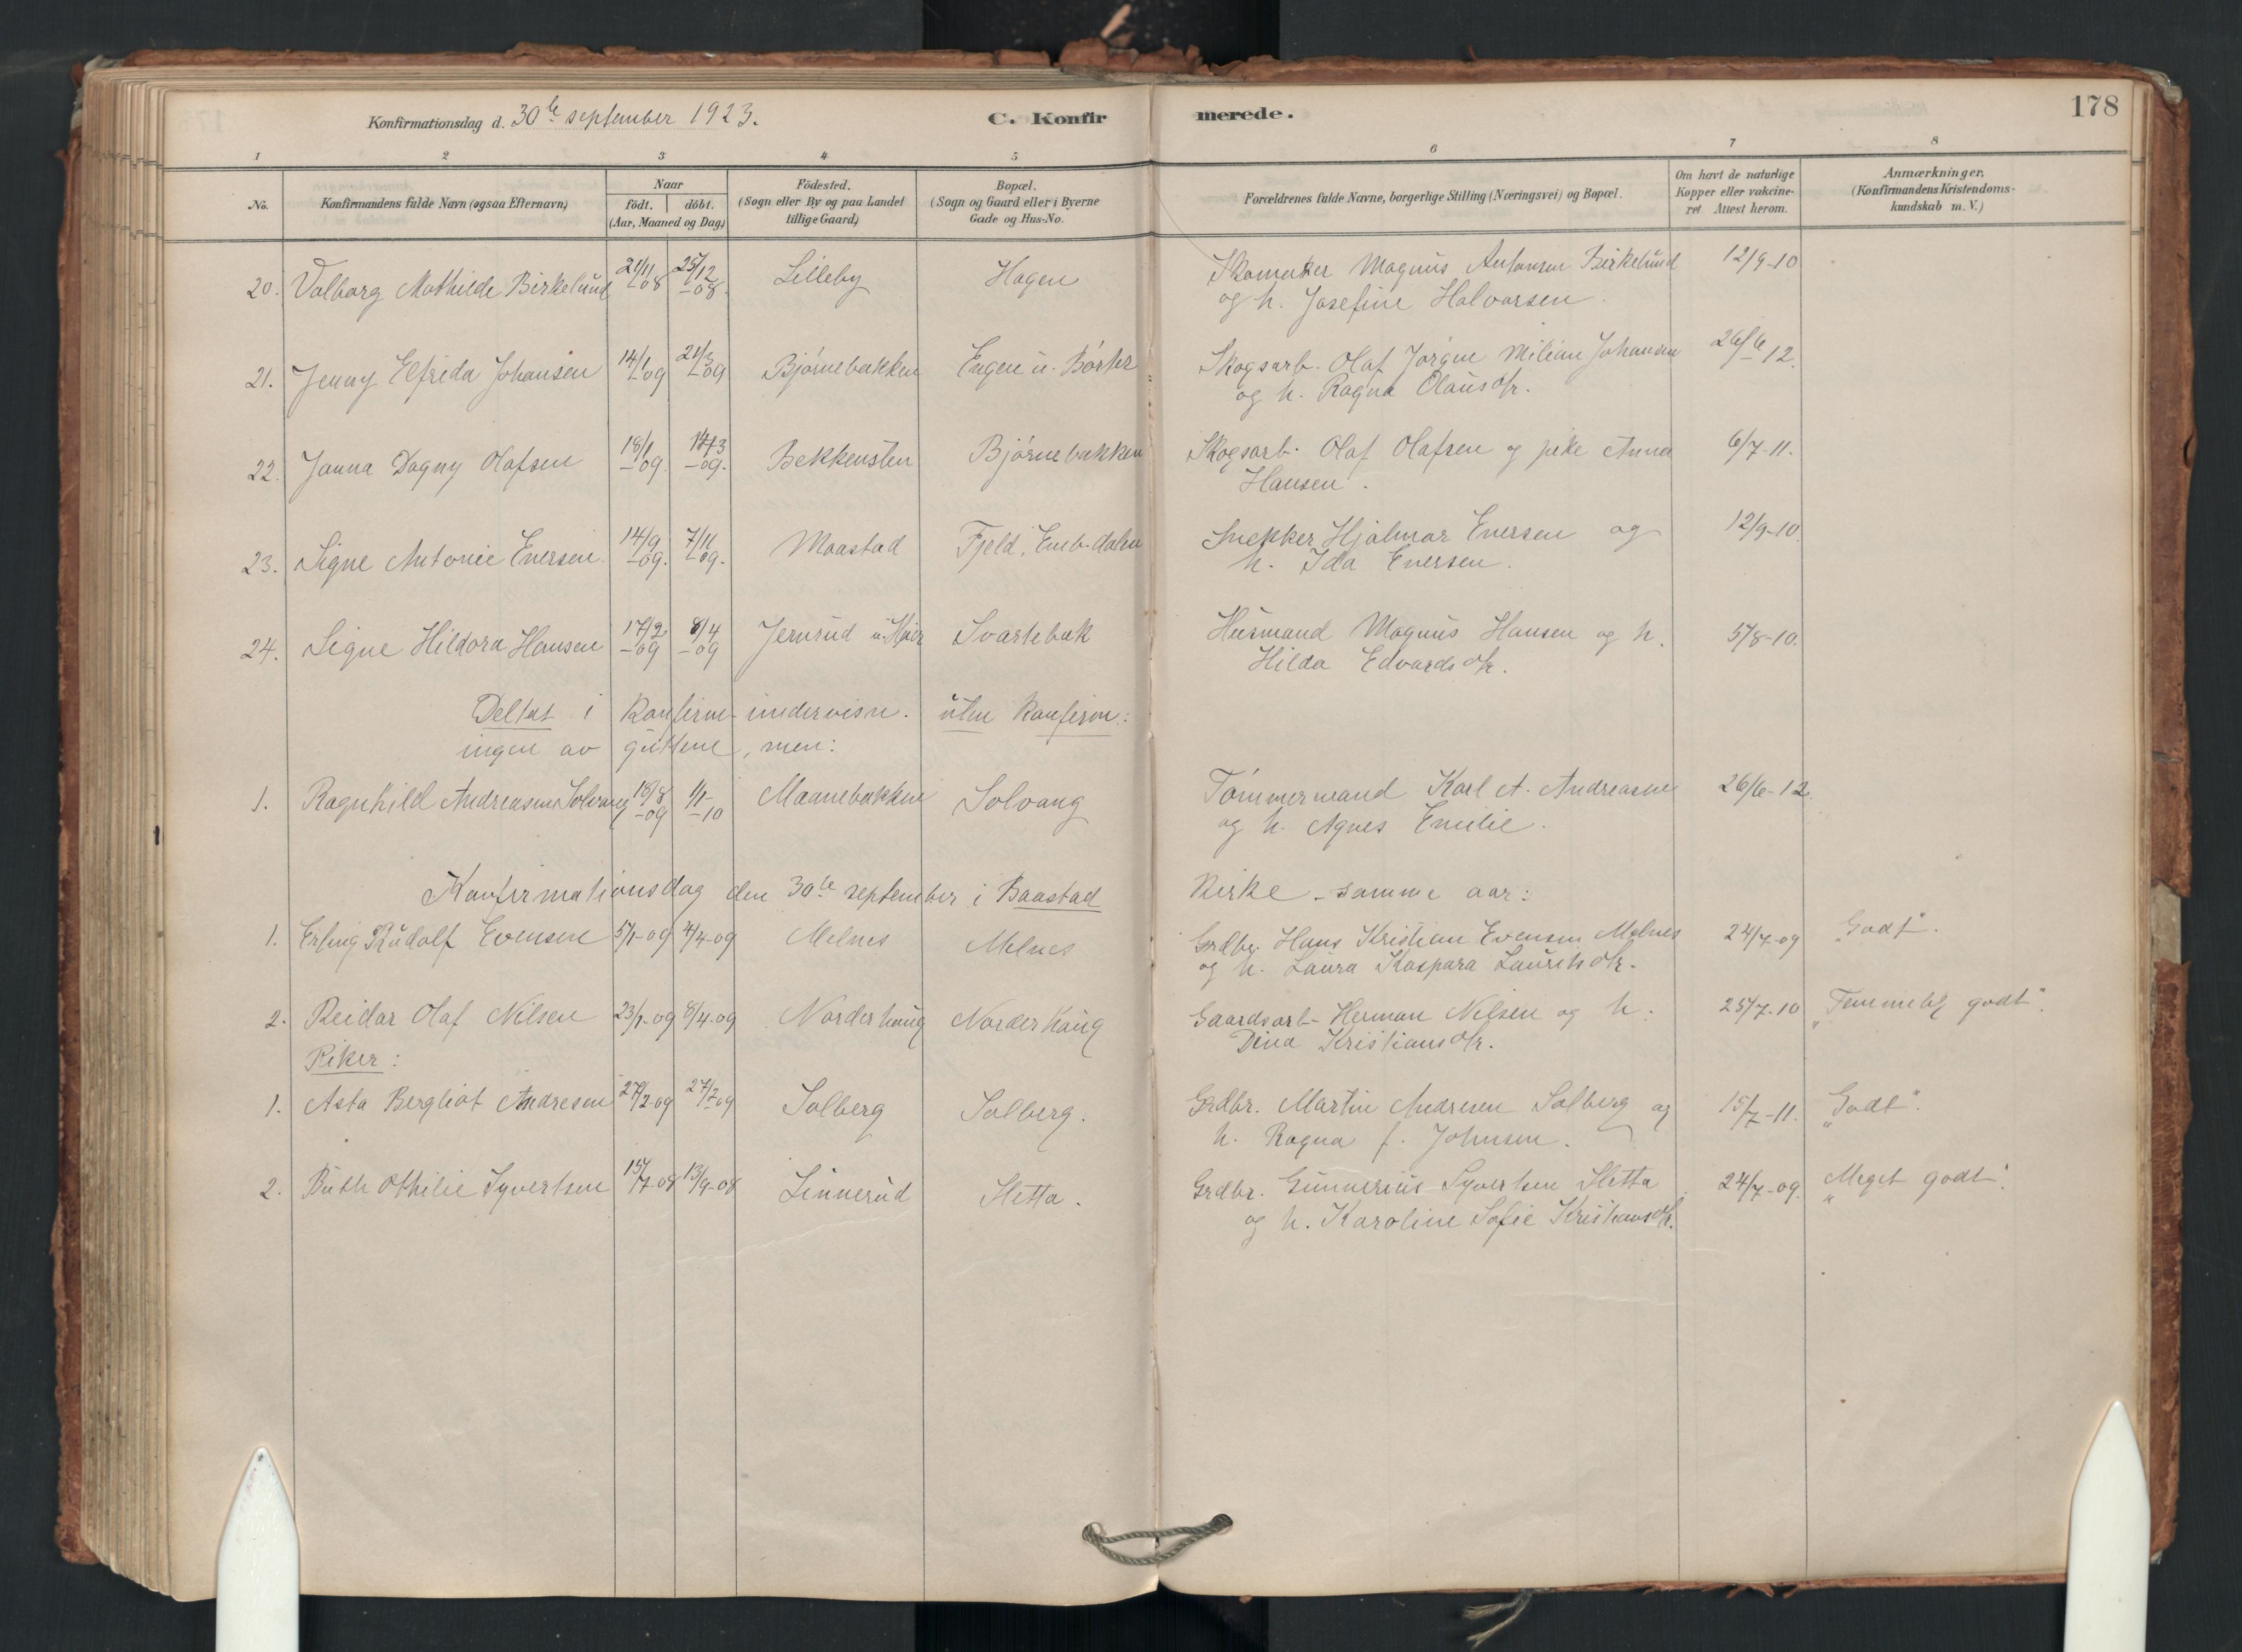 Konfirmationsdag d. 30te september 1923. C. Konfirmerede. 178
1 2 3 4 5 6 7 8
No. Konfirmandens fulde Navn (ogsaa Efternavn) Naar födt. döbt. (Aar, Maaned og Dag) Födested. (Sogn eller By og paa Landet tillige Gaard) Bopæl. (Sogn og Gaard eller i Byerne Gade og Hus-No. Forældrenes fulde Navne, borgerlige Stilling (Næringsvei) og Bopæl. Om havt de naturlige Kopper eller vakcineret Attest herom. Anmærkninger. (Konfirmandens Kristendomskundskab m. V.)
20. Valborg Mathilde Birkelund 21/11 -08 25/12 -08. Lilleby Hagen Skomaker Magnus Antonsen Birkelund 12/9-10
og h. Josefine Halvorsen.
21. Jenny Elfrida Johansen 14/1 -09 21/3 -09 Bjørnebakken Engen u. Børter Skogsarb. Olaf Jørgen Milian Johansen 26/6 12.
og h. Ragna Olausdtr.
22. Janna Dagny Olafsen 18/1 -09. -09. Bekkensten Bjørnebakken Skogsarb. Olaf Olafsen og pike Anna 6/7-11.
Hansen.
23. Signe Antonie Enersen 14/9 -09. 7/11 -09. Maastad Fjeld, Eneb.dalen Snekker Hjalmar Enersen og 12/9-10.
h. Ida Enersen.
24. Signe Hildora Hansen 17/2 -09 8/4 -09 Jernrud u. Svartebæk Husmand Magnus Hansen og h. 5/8-10.
Hilda Edvardsdtr.
Deltat i konfirm.undervisn. uten konfirm.:
ingen av guttene, men:
1. Ragnhild Andreasen Solvang 18/8 -09 1/1 -10 Maanebakken Solvang Tømmermand Karl A. Andreasen 26/6-12.
og h. Agnes Emilie.
Konfirmationsdag den 30te september i Baastad Kirke - samme aar:
1. Erling Rudolf Evensen 5/1-09 4/4-09 Melnes Melnes Grdbr. Hans Kristian Evensen Melnes 24/7-09 "Godt".
og h. Laura Kaspara Lauritsdtr.
2. Reidar Olaf Nilsen 23/1-09 8/4-09 Norderhaug Norderhaug Gaardsarb. Herman Nilsen og h. 25/7-10 "Temmelig godt".
Dina Kristiansdtr.
Piker:
1. Asta Bergliot Andresen 27/2-09 27/7 09 Solberg Solberg. Grdbr. Martin Andresen Solberg og 15/7-11. "Godt".
h. Ragna f. Johnsen.
2. Ruth Othilie Syvertsen 15/7-08 13/9-08 Linnerud Sletta. Grdbr. Gunnerius Syvertsen Sletta 24/7-09. "Meget godt".
og h. Karoline Sofie Kristiansdtr.